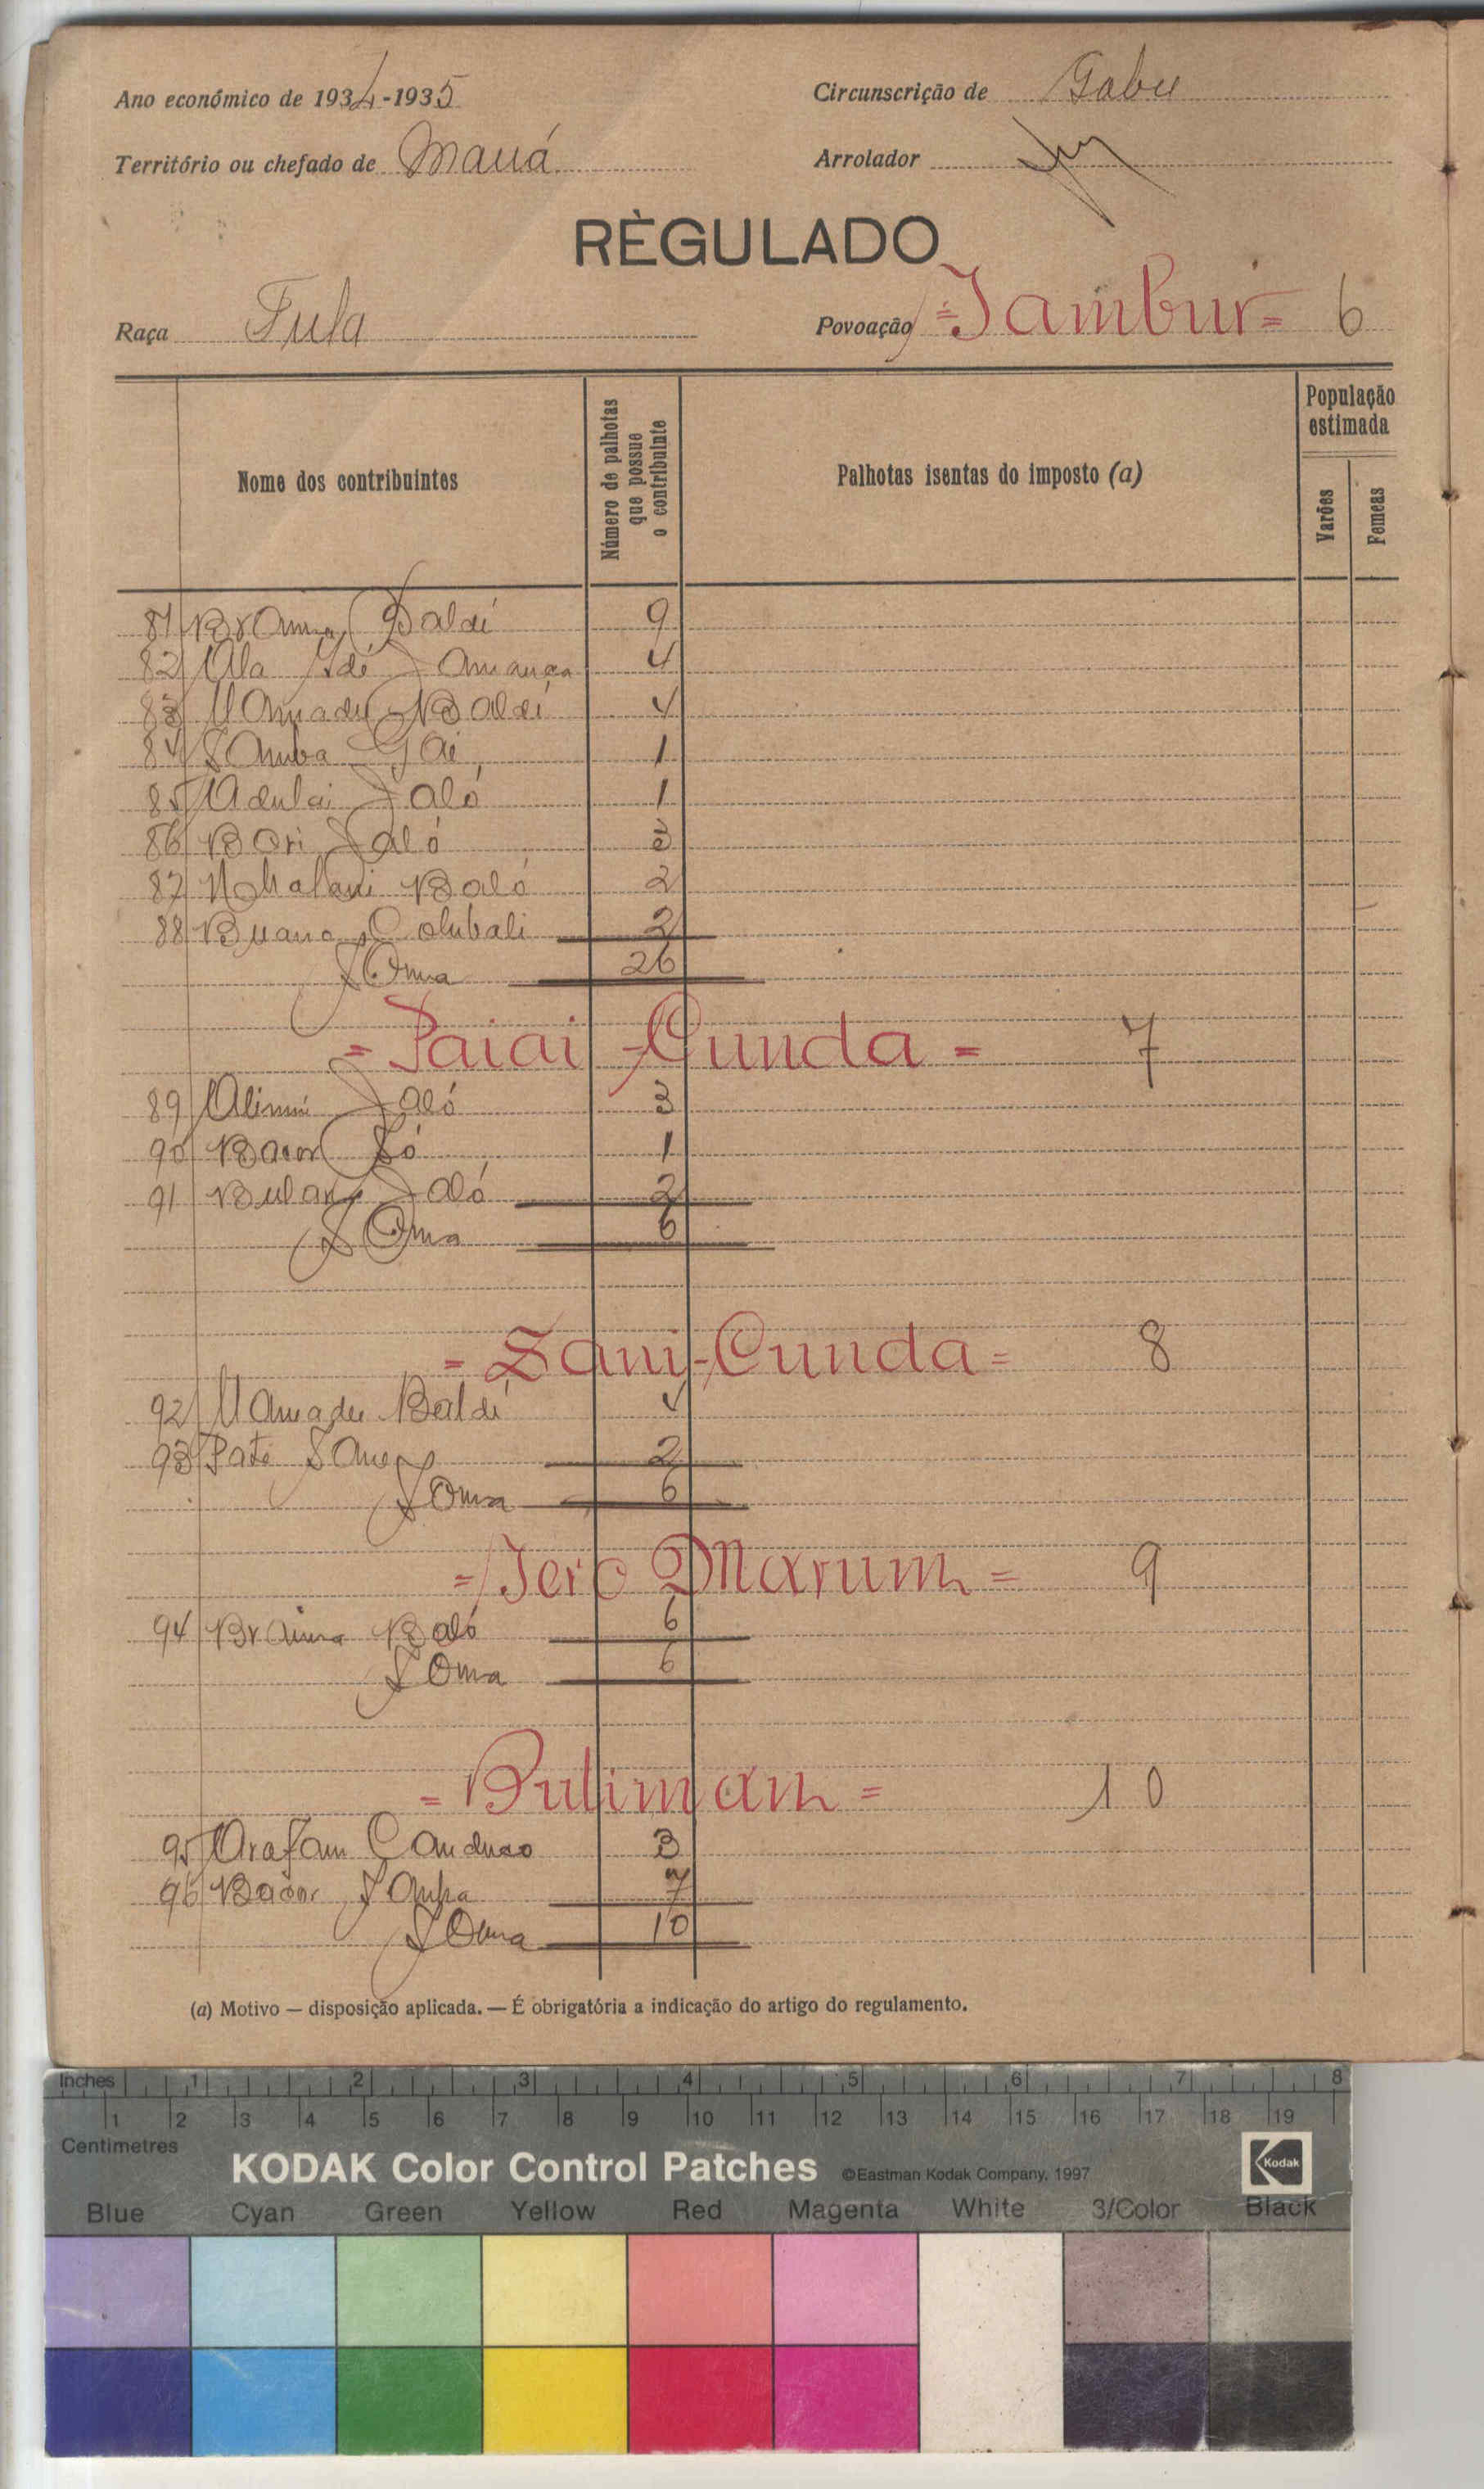 Ano económico de 1934-1935
Circunscrição de Gabu
Território ou chefado de Mauá
Arrolador
RÈGULADO
Raça Fula
Povoação =Jambur= 6
Nome dos contribuintes
Número de palhotas que possue o contribuinte
Palhotas isentas do imposto (a)
População estimada
Varões
Femeas
81 Braima Baldé 9
82 4
83 Mamadu Baldé 4
84 Samba 1
85 Adulai Jaló 1
86 Bori Jaló 3
87 Baló 2
88 Colubali 2
Soma 26
=Paiai-Cunda= 7
89 Jaló 3
90 Só 1
91 Jaló 2
Soma 6
=Sani-Cunda= 8
92 Mamadu Baldé 4
93 Paté 2
Soma 6
=Jero Marum= 9
94 Braima Baló 6
Soma 6
=Bulimam= 10
95 Arafam 3
96 7
Soma 10
(a) Motivo — disposição aplicada. — É obrigatória a indicação do artigo do regulamento.
Inches 1 2 3 4 5 6 7 8
1 2 3 4 5 6 7 8 9 10 11 12 13 14 15 16 17 18 19
Centimetres
KODAK Color Control Patches ©Eastman Kodak Company, 1997 Kodak
Blue Cyan Green Yellow Red Magenta White 3/Color Black